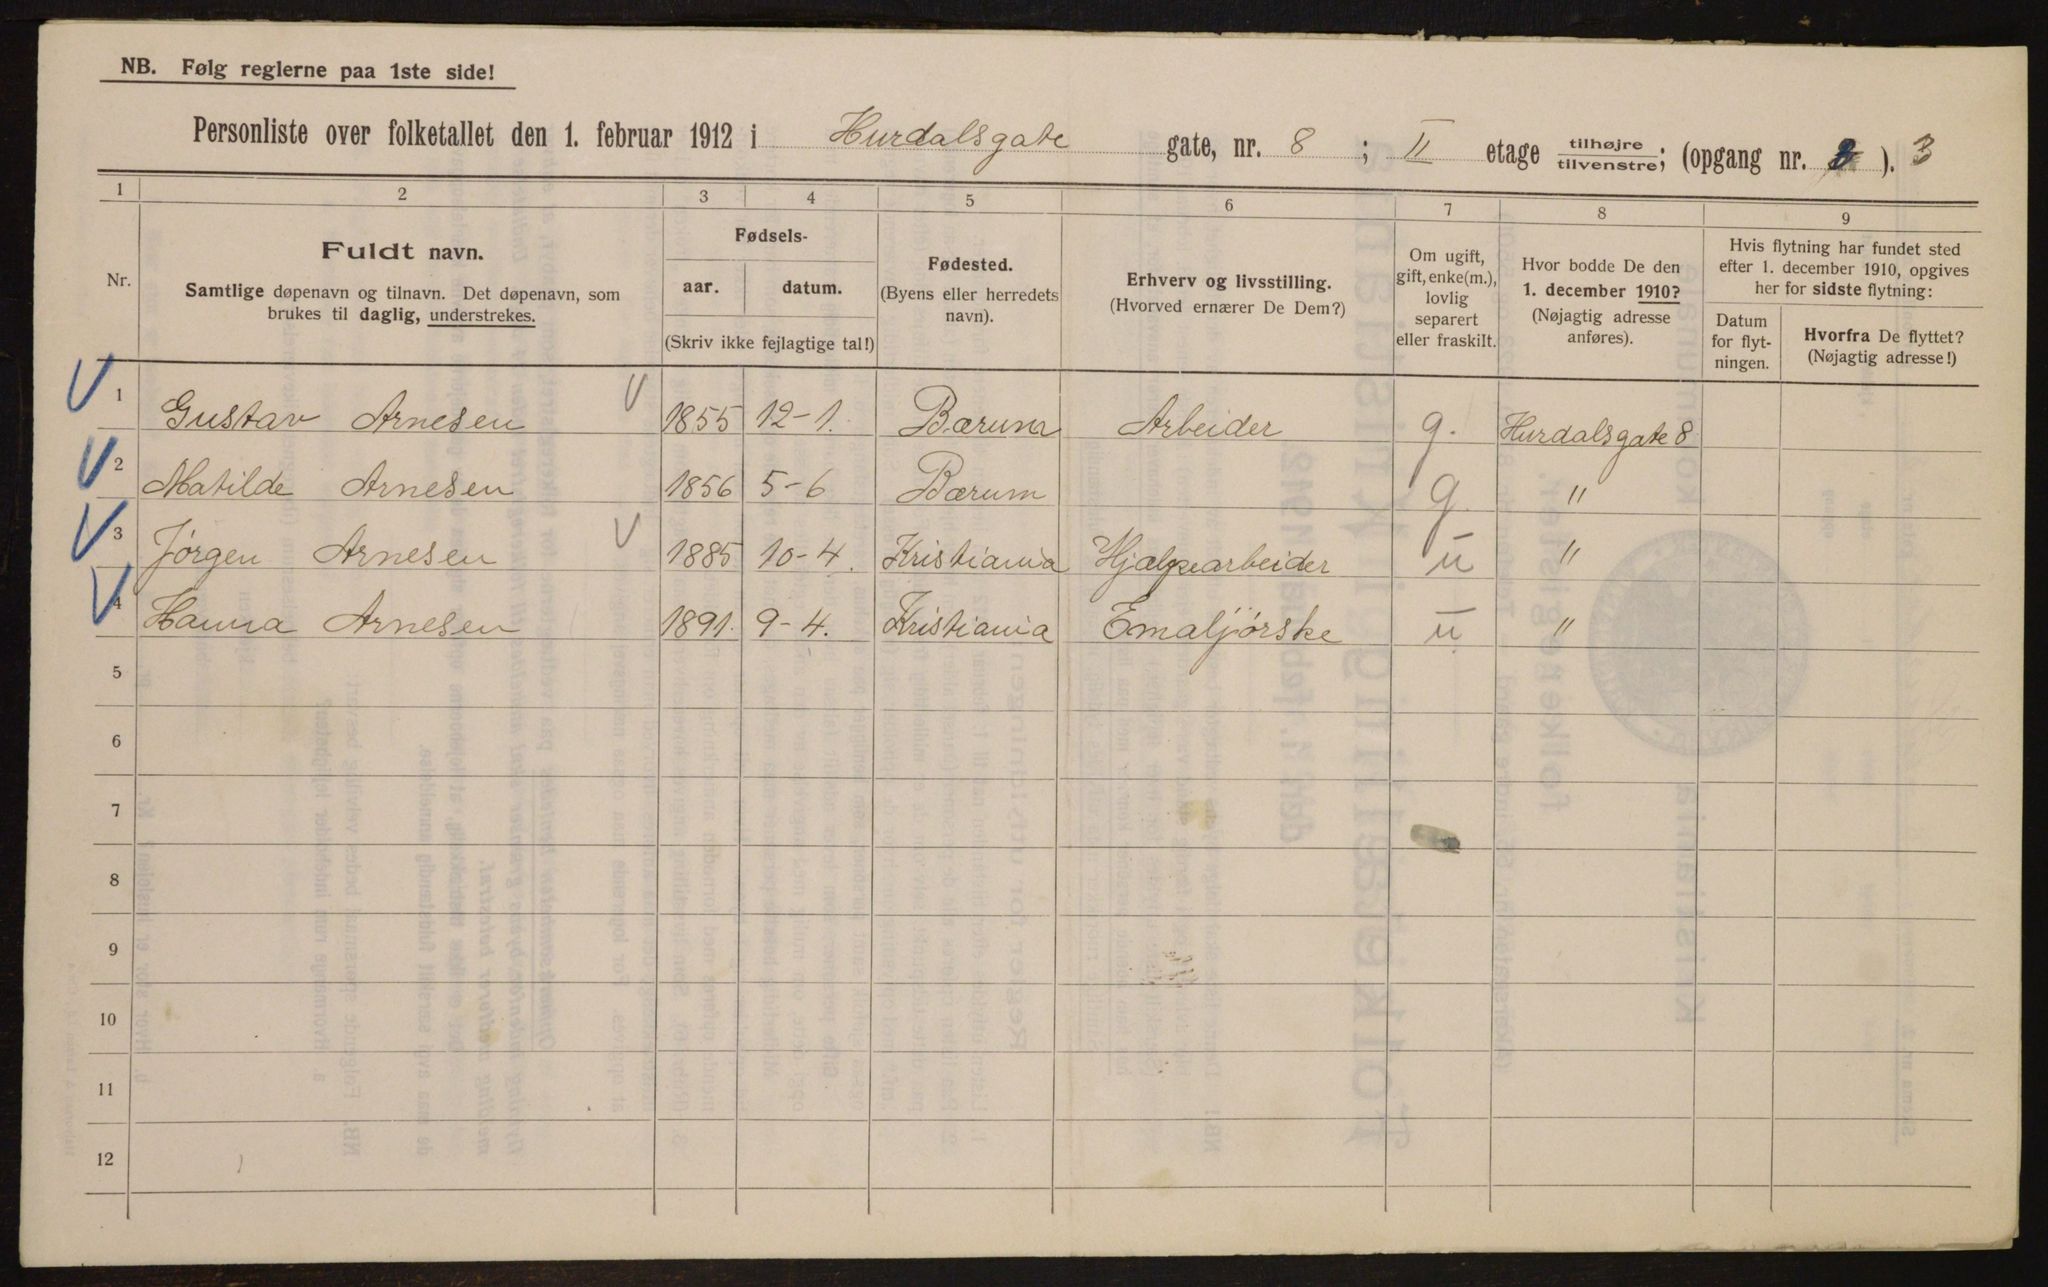 NB. Følg reglerne paa 1ste side!
Personliste over folketallet den 1. februar 1912 i Hurdalsgate gate, nr. 8 ; II etage tilhøjre tilvenstre; (opgang nr. ). 3
1 2 3 4 5 6 7 8 9
Nr.
Fuldt navn.
Samtlige døpenavn og tilnavn. Det døpenavn, som
brukes til daglig, understrekes.
Fødsels-
aar. datum.
(Skriv ikke fejlagtige tal!)
Fødested.
(Byens eller herredets
navn).
Erhverv og livsstilling.
(Hvorved ernærer De Dem?)
Om ugift,
gift, enke(m.),
lovlig
separert
eller fraskilt.
Hvor bodde De den
1. december 1910?
(Nøjagtig adresse
anføres).
Hvis flytning har fundet sted
efter 1. december 1910, opgives
her for sidste flytning:
Datum
for flyt-
ningen.
Hvorfra De flyttet?
(Nøjagtig adresse!)
1 Gustav Arnesen 1855 12-1. Bærum Arbeider g. Hurdalsgate 8
2 Matilde Arnesen 1856 5-6 Bærum g. "
3 Jørgen Arnesen 1885 10-4. Kristiania Hjælpearbeider u "
4 Hanna Arnesen 1891. 9-4. Kristiania Emaljørske u "
5
6
7
8
9
10
11
12